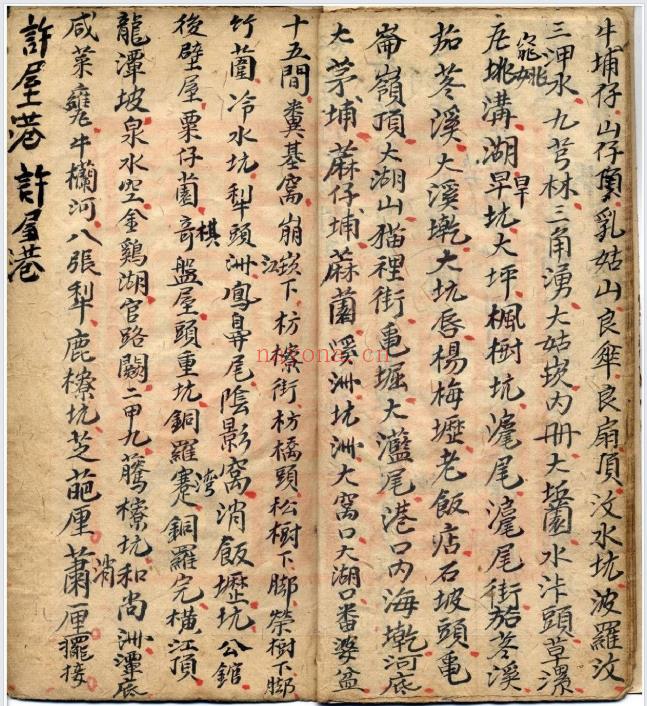 牛埔仔山仔頂乳姑山良傘良扇頂汶水坑波羅汶
三洽水九芎林三角湧大姑崁內冊大坵園水汴頭草漯
庄桃溝湖旱坑大坪楓樹坑滬尾滬尾街茄苳溪
窕姚
旱
茄苳溪大溪墘大坑唇楊梅壢老飯店石坡頭黽
崙嶺頂大湖山猫裡街黽堀大灆尾港口內海墘河底
大茅埔蔴仔埔蔴園溪洲坑洲大窩口大湖口番婆盆
十五間糞基窩崩崁下枋橑街枋橋頭松樹下腳榮樹下腳
江
竹圍冷水坑犁頭洲鳳鼻尾陰影窩消飯壢坑公館
後壁屋粟仔園奇盤屋頭重坑銅羅蹇銅羅完橫江頂
棋
灣
龍潭坡泉水空金鷄湖官路闕二甲九藤橑坑和尚洲潭底
咸菜甕牛欄河八張犁鹿橑坑芝葩厘蕭厘擺接
消
許屋港許屋港
nazona.cn